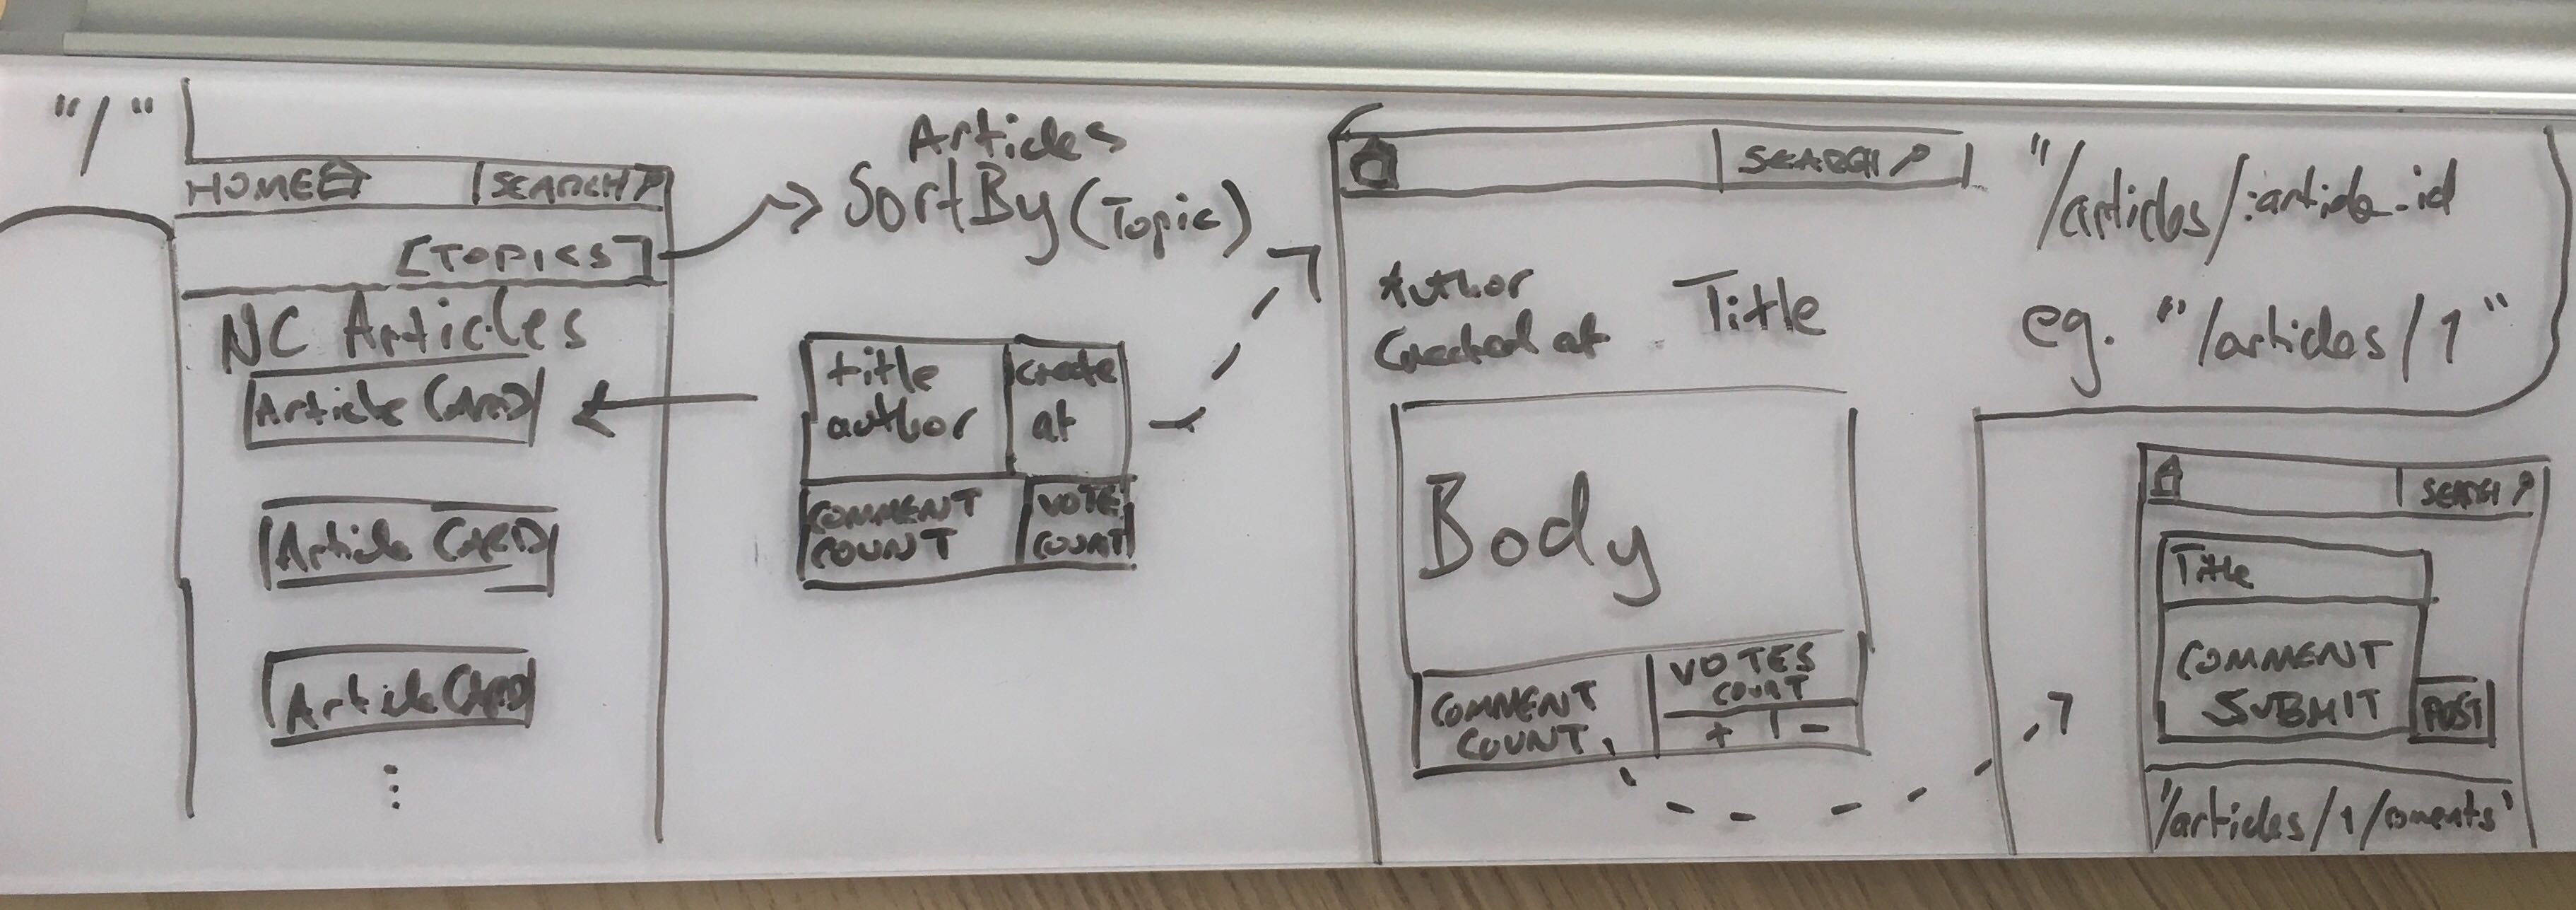 "/"
HOME
SEARCH
[TOPICS]
NC Articles
Article CARD
Article CARD
Article CARD
Articles
SortBy (Topic)
title
author
create
at
COMMENT
COUNT
VOTE
COUNT
SEARCH
Author
Created at
Title
Body
COMMENT
COUNT
VOTES
COUNT
+ | -
"/articles/:article_id
eg. "/articles/1"
SEARCH
Title
COMMENT
SUBMIT
POST
"/articles/1/coments"